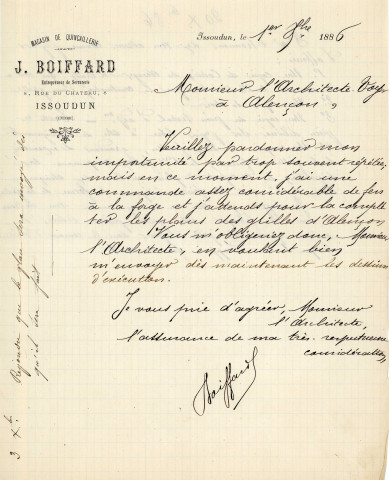 MAGASIN DE QUINCAILLERIE
J. BOIFFARD
Entrepreneur de Serrurerie
6, RUE DU CHATEAU, 6
ISSOUDUN
(INDRE)
Issoudun, le 1er 8bre 1886
Monsieur l'Architecte
à Alençon,
Veuillez pardonner mon
importunité par trop souvent répétée,
mais en ce moment, j'ai une
commande assez considérable de fers
à la forge et j'attends pour la complè-
ter les plans des grilles d'Alençon
Vous m'obligeriez donc, Monsieur
l'Architecte, en voulant bien
m'envoyer dès maintenant les dessins
d'exécution.
Je vous prie d'agréer, Monsieur
l'Architecte,
l'assurance de ma très respectueuse
considération
Boiffard
3 Xbre Répondu que le plan sera envoyé dès
qu'il sera fait